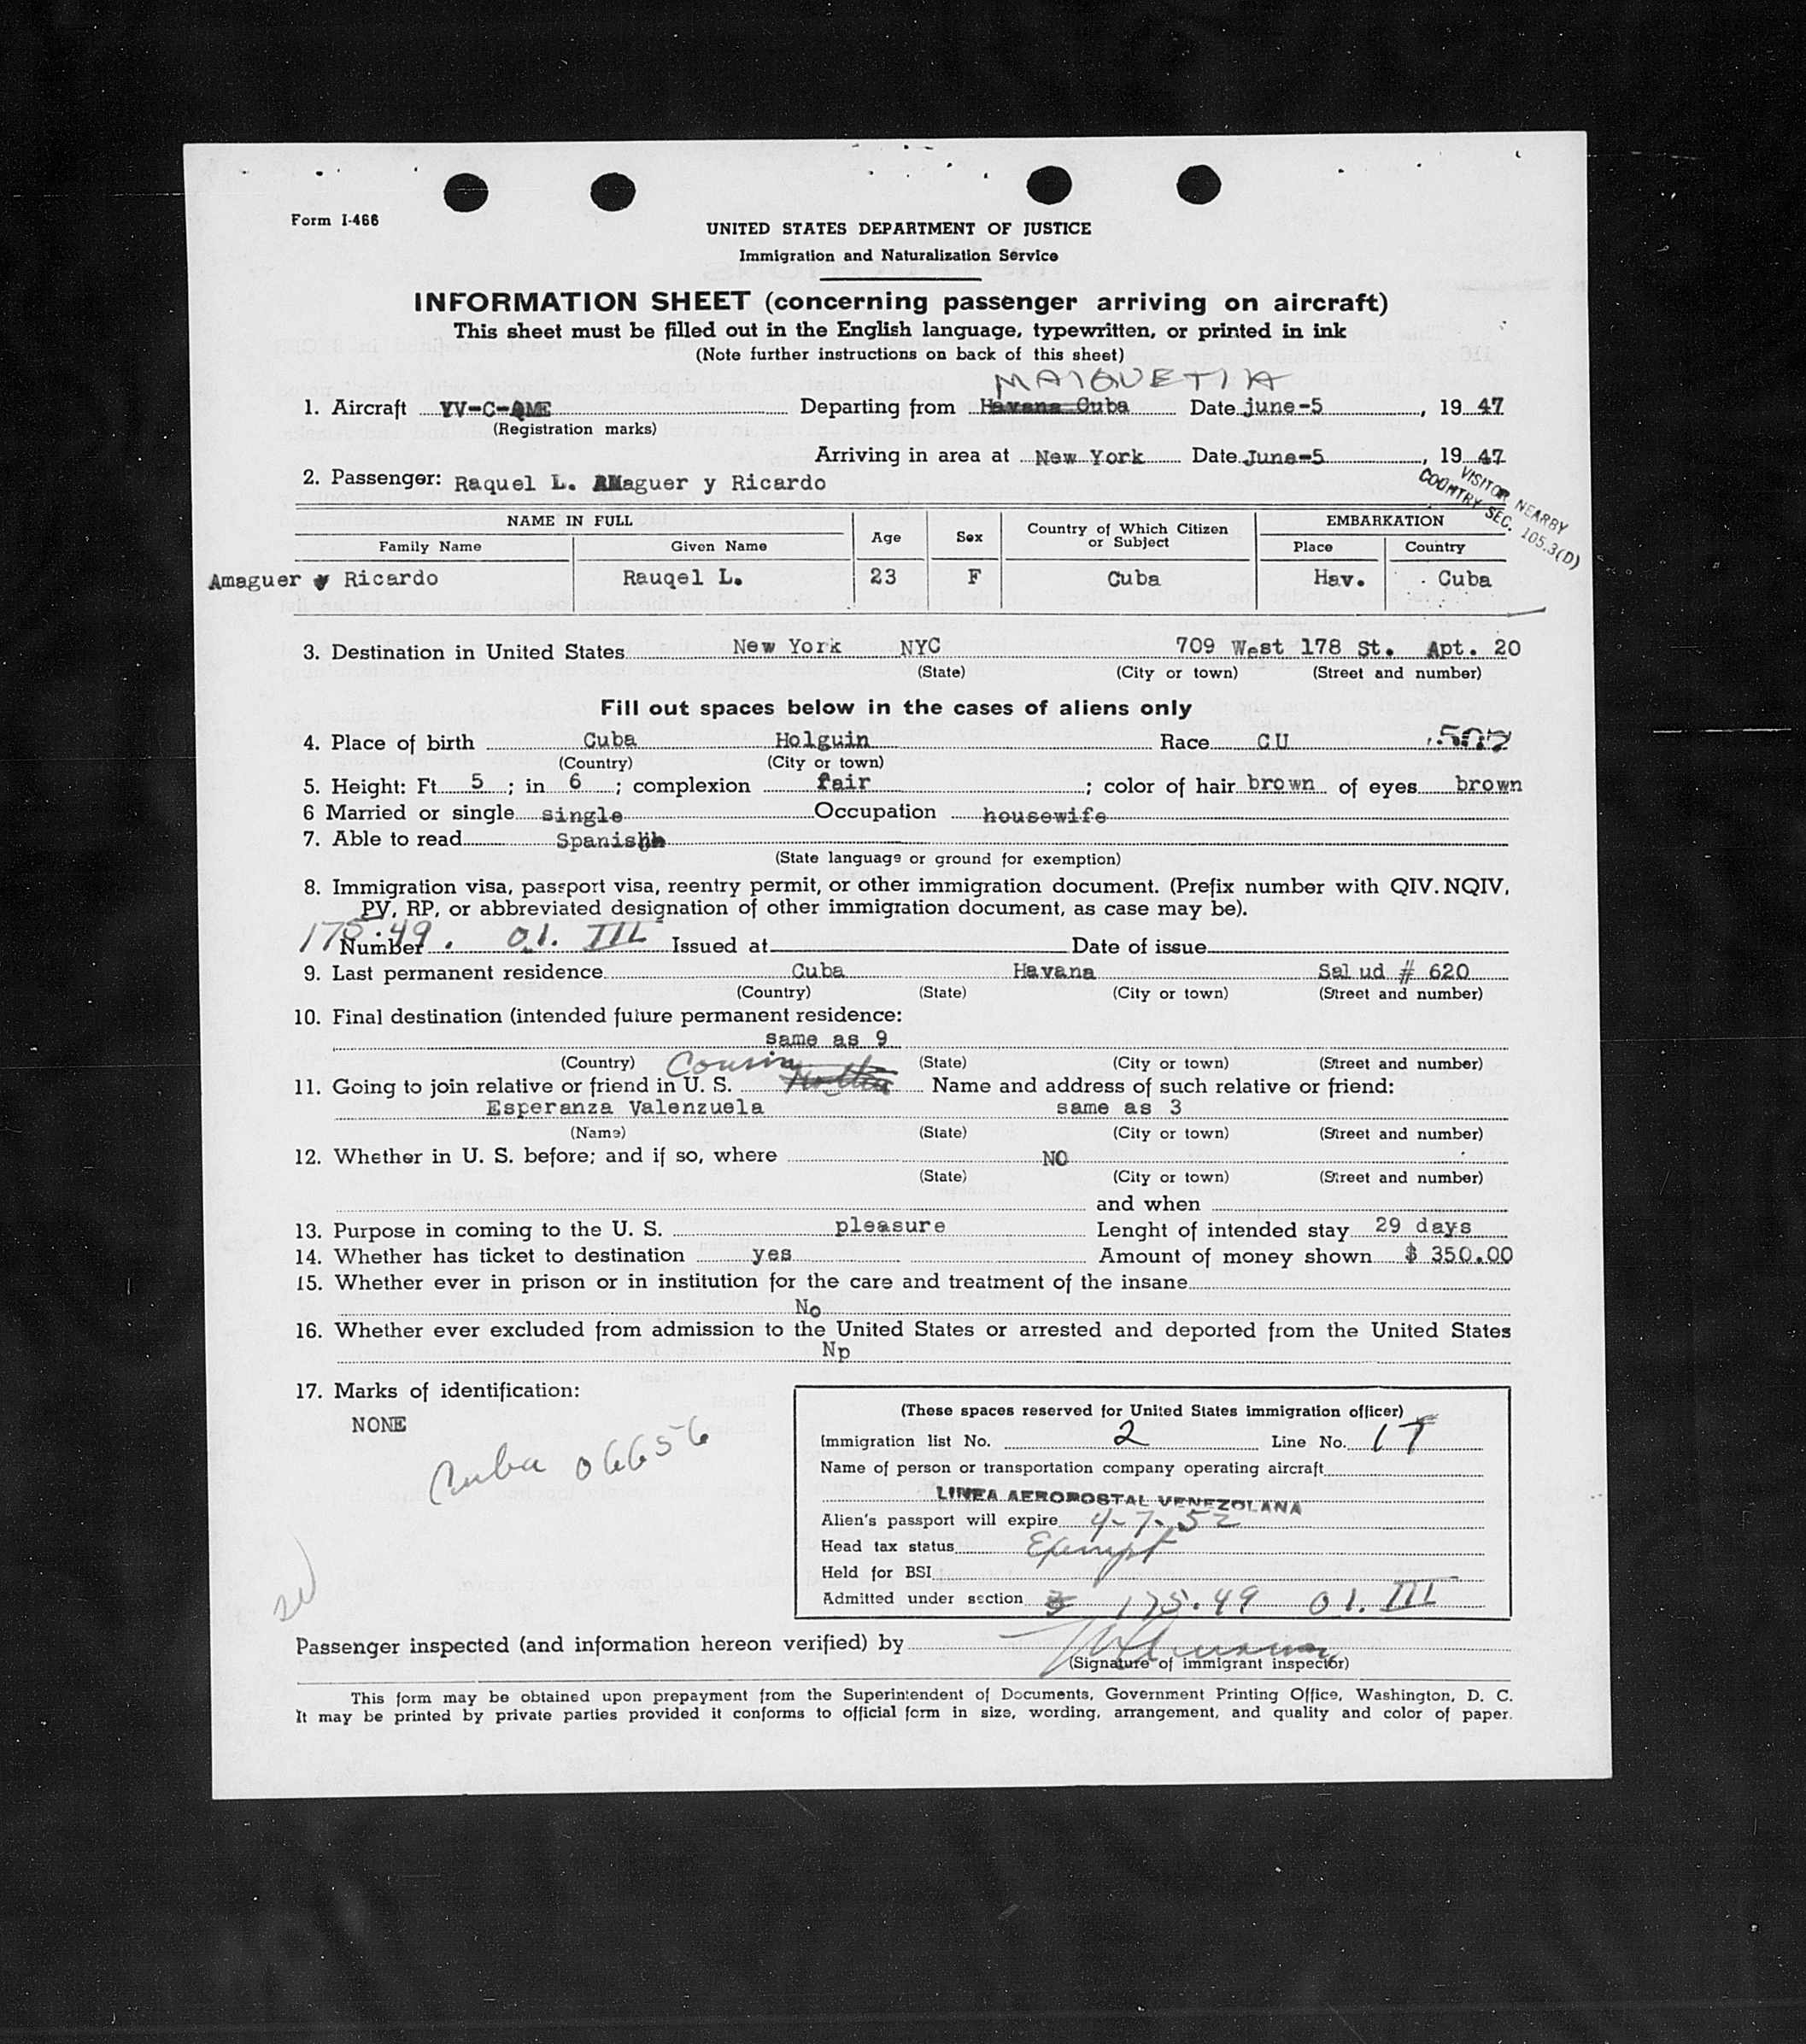 Form I-466
UNITED STATES DEPARTMENT OF JUSTICE
Immigration and Naturalization Service
INFORMATION SHEET (concerning passenger arriving on aircraft)
This sheet must be filled out in the English language, typewritten, or printed in ink
(Note further instructions on back of this sheet)
MAIQUETIA
1. Aircraft YV-C-AME Departing from Havana Cuba Date june-5, 19 47
(Registration marks)
Arriving in area at New York Date June-5, 19 47
2. Passenger: Raquel L. AMaguer y Ricardo
VISITOR NEARBY
COUNTRY SEC. 105.3(D)
NAME IN FULL Age Sex Country of Which Citizen or Subject EMBARKATION
Family Name Given Name Place Country
Amaguer y Ricardo Rauqel L. 23 F Cuba Hav. Cuba
3. Destination in United States New York NYC 709 West 178 St. Apt. 20
(State) (City or town) (Street and number)
Fill out spaces below in the cases of aliens only
4. Place of birth Cuba Holguin Race CU
(Country) (City or town)
5. Height: Ft 5; in 6; complexion fair; color of hair brown of eyes brown
6 Married or single single Occupation housewife
7. Able to read Spanish
(State language or ground for exemption)
8. Immigration visa, passport visa, reentry permit, or other immigration document. (Prefix number with QIV. NQIV,
PV, RP, or abbreviated designation of other immigration document, as case may be).
Number 175.49. 01. III Issued at Date of issue
9. Last permanent residence Cuba Havana Salud # 620
(Country) (State) (City or town) (Street and number)
10. Final destination (intended future permanent residence:
same as 9
(Country) (State) (City or town) (Street and number)
Cousin
11. Going to join relative or friend in U. S. Name and address of such relative or friend:
Esperanza Valenzuela same as 3
(Name) (State) (City or town) (Street and number)
12. Whether in U. S. before; and if so, where NO
(State) (City or town) (Street and number)
and when
13. Purpose in coming to the U. S. pleasure Lenght of intended stay 29 days
14. Whether has ticket to destination yes Amount of money shown $ 350.00
15. Whether ever in prison or in institution for the care and treatment of the insane
No
16. Whether ever excluded from admission to the United States or arrested and deported from the United States
Np
17. Marks of identification:
NONE
Cuba 06656
(These spaces reserved for United States immigration officer)
Immigration list No. 2 Line No. 17
Name of person or transportation company operating aircraft
LINEA AEROPOSTAL VENEZOLANA
Alien's passport will expire 4-7-52
Head tax status Exempt
Held for BSI
Admitted under section 3 175.49 01. III
Passenger inspected (and information hereon verified) by
(Signature of immigrant inspector)
This form may be obtained upon prepayment from the Superintendent of Documents, Government Printing Office, Washington, D. C.
It may be printed by private parties provided it conforms to official form in size, wording, arrangement, and quality and color of paper.